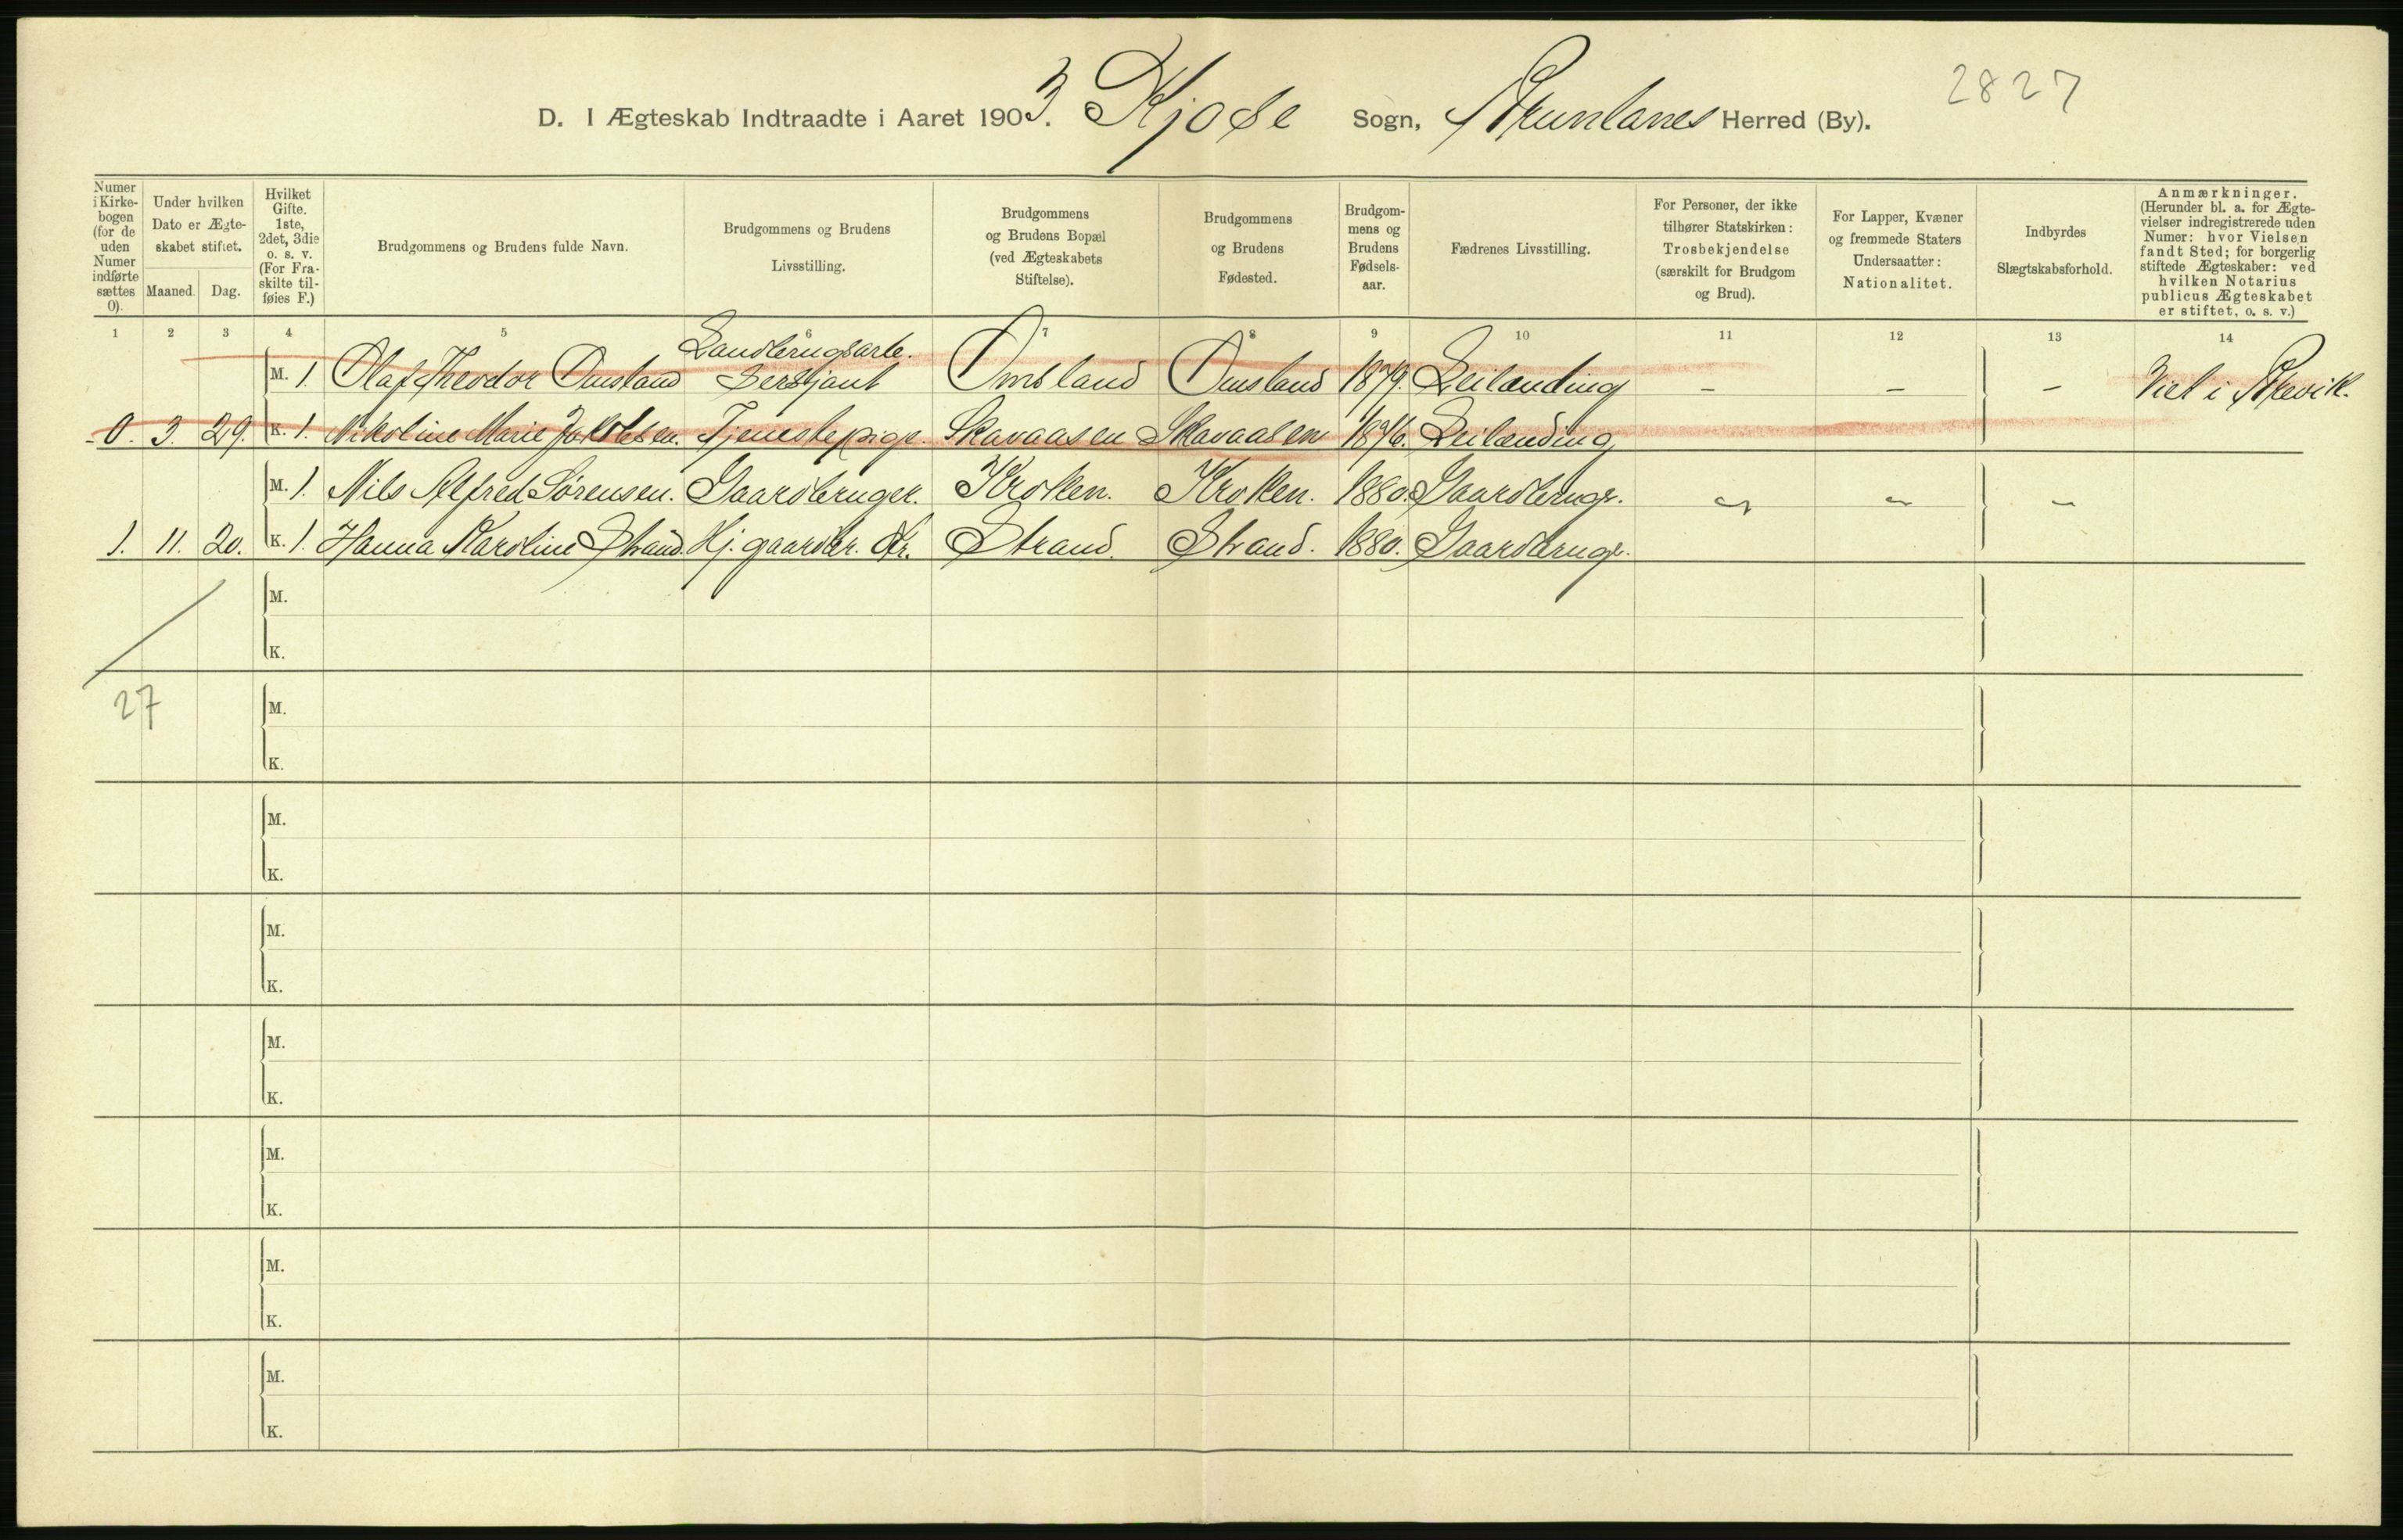 2827
D. I Ægteskab Indtraadte i Aaret 1903. Kjose Sogn, Brunlanes Herred (By).
Numer i Kirke-bogen (for de uden Numer indførte sættes 0).
Under hvilken Dato er Ægte-skabet stiftet.
Maaned. Dag.
Hvilket Gifte. 1ste, 2det, 3die o. s. v. (For Fra-skilte til-føies F.)
Brudgommens og Brudens fulde Navn.
Brudgommens og Brudens Livsstilling.
Brudgommens og Brudens Bopæl (ved Ægteskabets Stiftelse).
Brudgommens og Brudens Fødested.
Brudgom-mens og Brudens Fødsels-aar.
Fædrenes Livsstilling.
For Personer, der ikke tilhører Statskirken: Trosbekjendelse (særskilt for Brudgom og Brud).
For Lapper, Kvæner og fremmede Staters Undersaatter: Nationalitet.
Indbyrdes Slægtskabsforhold.
Anmærkninger. (Herunder bl. a. for Ægte-vielser indregistrerede uden Numer: hvor Vielsen fandt Sted; for borgerlig stiftede Ægteskaber: ved hvilken Notarius publicus Ægteskabet er stiftet, o. s. v.)
1 2 3 4 5 6 7 8 9 10 11 12 13 14
Landbrugsarb.
M. 1. Olaf Theodor Omsland Serskjant Omsland Omsland 1879. Leilænding - - - Viet i
0. 3. 29. K. 1. Nikoline Marie Jakobsen. Tjenestepige. Skavaasen Skavaasen 1876. Leilænding
M. 1. Nils Alfred Sørensen. Gaardbruger. Kroken. Kroken. 1880. Gaardbrugr. - - -
1. 11. 20. K. 1. Hanna Karoline Strand. Hj. gaardbr. dtr. Strand. Strand. 1880. Gaardbrugr.
M.
K.
27
M.
K.
M.
K.
M.
K.
M.
K.
M.
K.
M.
K.
M.
K.